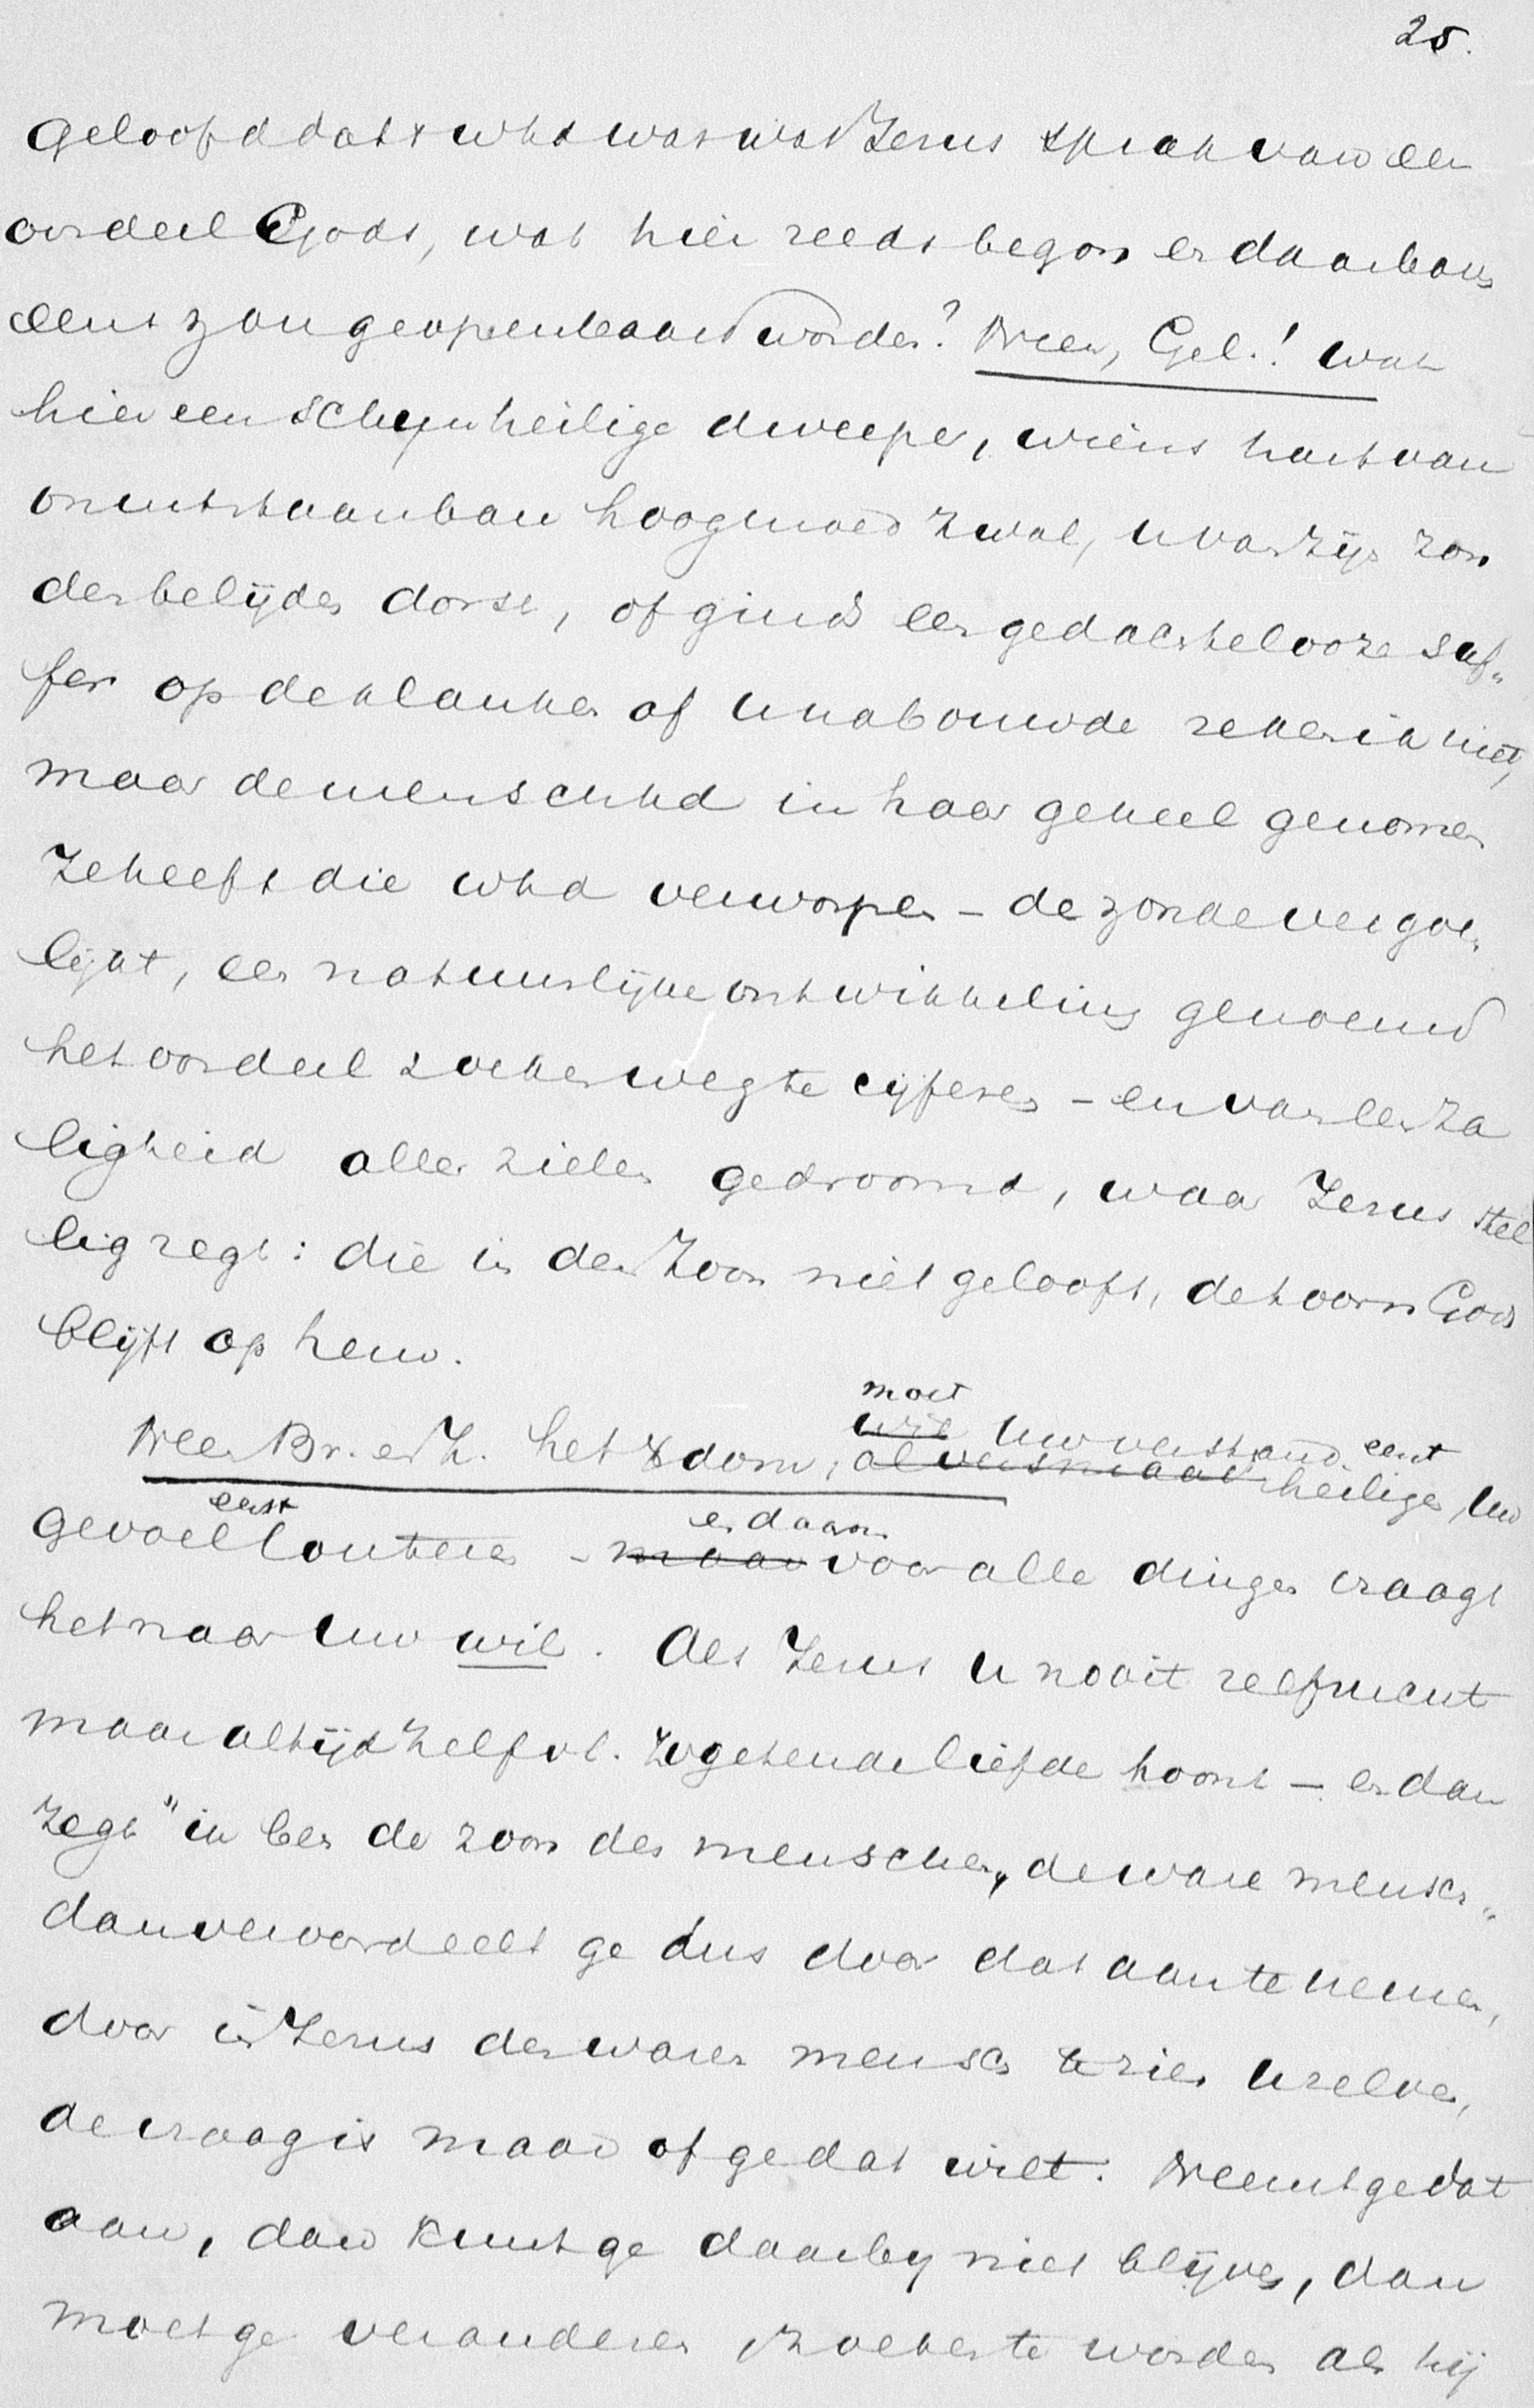 25.
geloofd dat 't whd was wat Jezus sprak van een
oordeel Gods, wat hier reeds begon en daarboven
eens zou geopenbaard worden? Neen, Gel.! wat
hier een schijnheilige dweeper, wiens hart van
onuitstaanbaren hoogmoed zwol, u van zijn zon
den belijden dorst, of ginds een gedachtelooze suf-
fer op de klanken af u nabouwde reken ik niet,
maar de menschhd in haar geheel genomen
ze heeft die whd verworpen – de zonde vergoe-
lijkt, een natuurlijke ontwikkeling genoemd
het oordeel zoeken weg te cijferen – en van een za
ligheid aller zielen gedroomd, waar Jezus stel
lig zegt: die in den Zoon niet gelooft, de toorn Gods
blijft op hem.
moet
Neen Br. en Z. het Xdom, wil uw verstand eerst
al versmaadt heiligen, uw
eerst en daarom
gevoel louteren – maar voor alle dingen vraagt
het naar uw wil. Als Jezus u nooit zelfzucht
maar altijd zelfvergetende liefde toont – en dan
zegt "ik ben de zoon des menschen, de ware mensch"
dan veroordeelt ge dus door dat aan te nemen,
door in Jezus den waren mensch te zien uzelven,
de vraag is maar of ge dat wilt. Neemt ge dat
aan, dan kunt ge daarby niet blijven, dan
moet ge veranderen zoeken te worden als hij